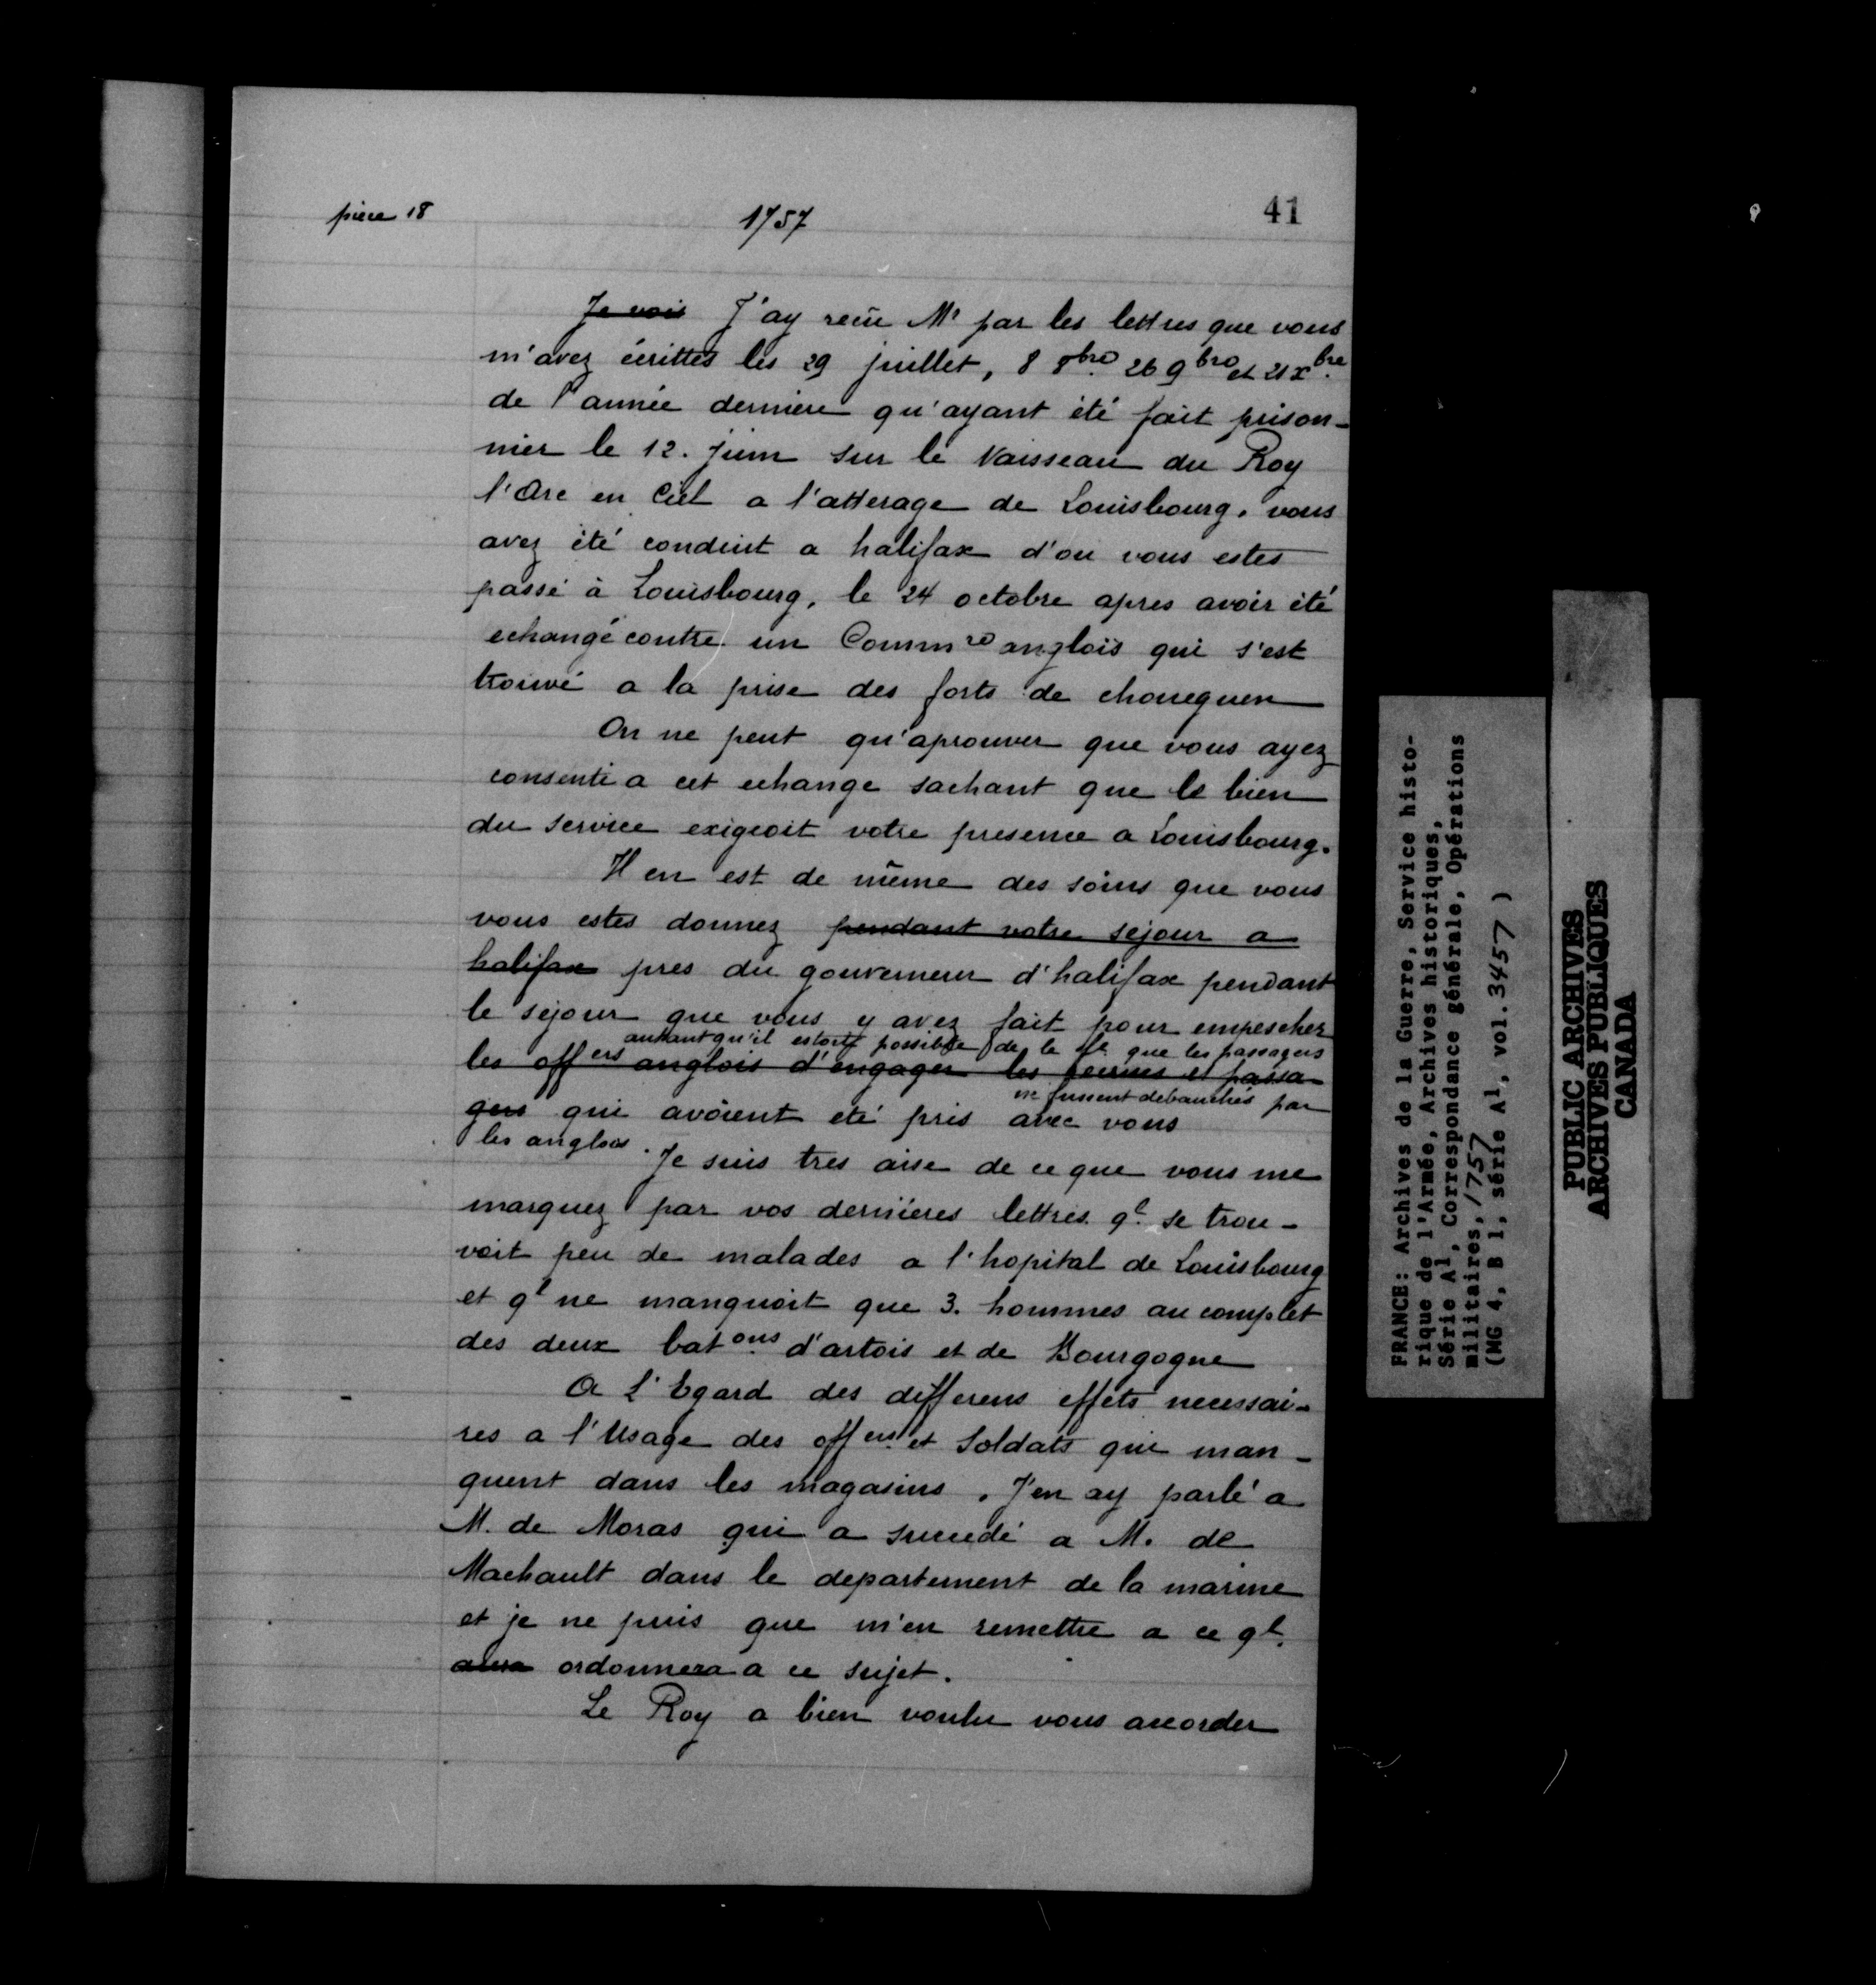 pièce 18
1757
41
Je vois J'ay recu Mr par les lettres que vous
m'avez écrittes les 29 juillet, 8 8bre 26 9bre et 21 xbre
de l'année derniere qu'ayant été fait prison-
nier le 12. juin sur le Vaisseau du Roy
l'Arc en Ciel a l'atterage de Louisbourg. vous
avez été conduit a halifax d'ou vous estes
passé à Louisbourg, le 24 octobre apres avoir été
echangé contre un Commre anglois qui s'est
trouvé a la prise des forts de choueguen
On ne peut qu'aprouver que vous ayez
consenti a cet echange sachant que le bien
du service exigeoit votre presence a Louisbourg.
Il en est de même des soins que vous
vous estes donnez pendant votre sejour a
halifax pres du gouverneur d'halifax pendant
le sejour que vous y avez fait pour empescher
autant qu'il estoit possible de le que les passagers
les offers anglois d'engager les et passa-
ne fussent debauchés par
gers qui avoient eté pris avec vous
les anglois.
Je suis tres aise de ce que vous me
marquez par vos dernieres lettres ql se trou-
voit peu de malades a l'hopital de Louisbourg
et ql ne manquoit que 3. hommes au complet
des deux batons d'artois et de Bourgogne
A L'Egard des differens effets necessai-
res a l'Usage des offers et Soldats qui man-
quent dans les magasins. J'en ay parlé a
M. de Moras qui a succedé a M. de
Machault dans le departement de la marine
et je ne puis que m'en remettre a ce ql.
aura ordonnera a ce sujet.
Le Roy a bien voulu vous accorder
FRANCE: Archives de la Guerre, Service histo-
rique de l'Armée, Archives historiques,
Série A1, Correspondance générale, Opérations
militaires, 1757
(MG 4, B 1, série A1, vol. 3457)
PUBLIC ARCHIVES
ARCHIVES PUBLIQUES
CANADA